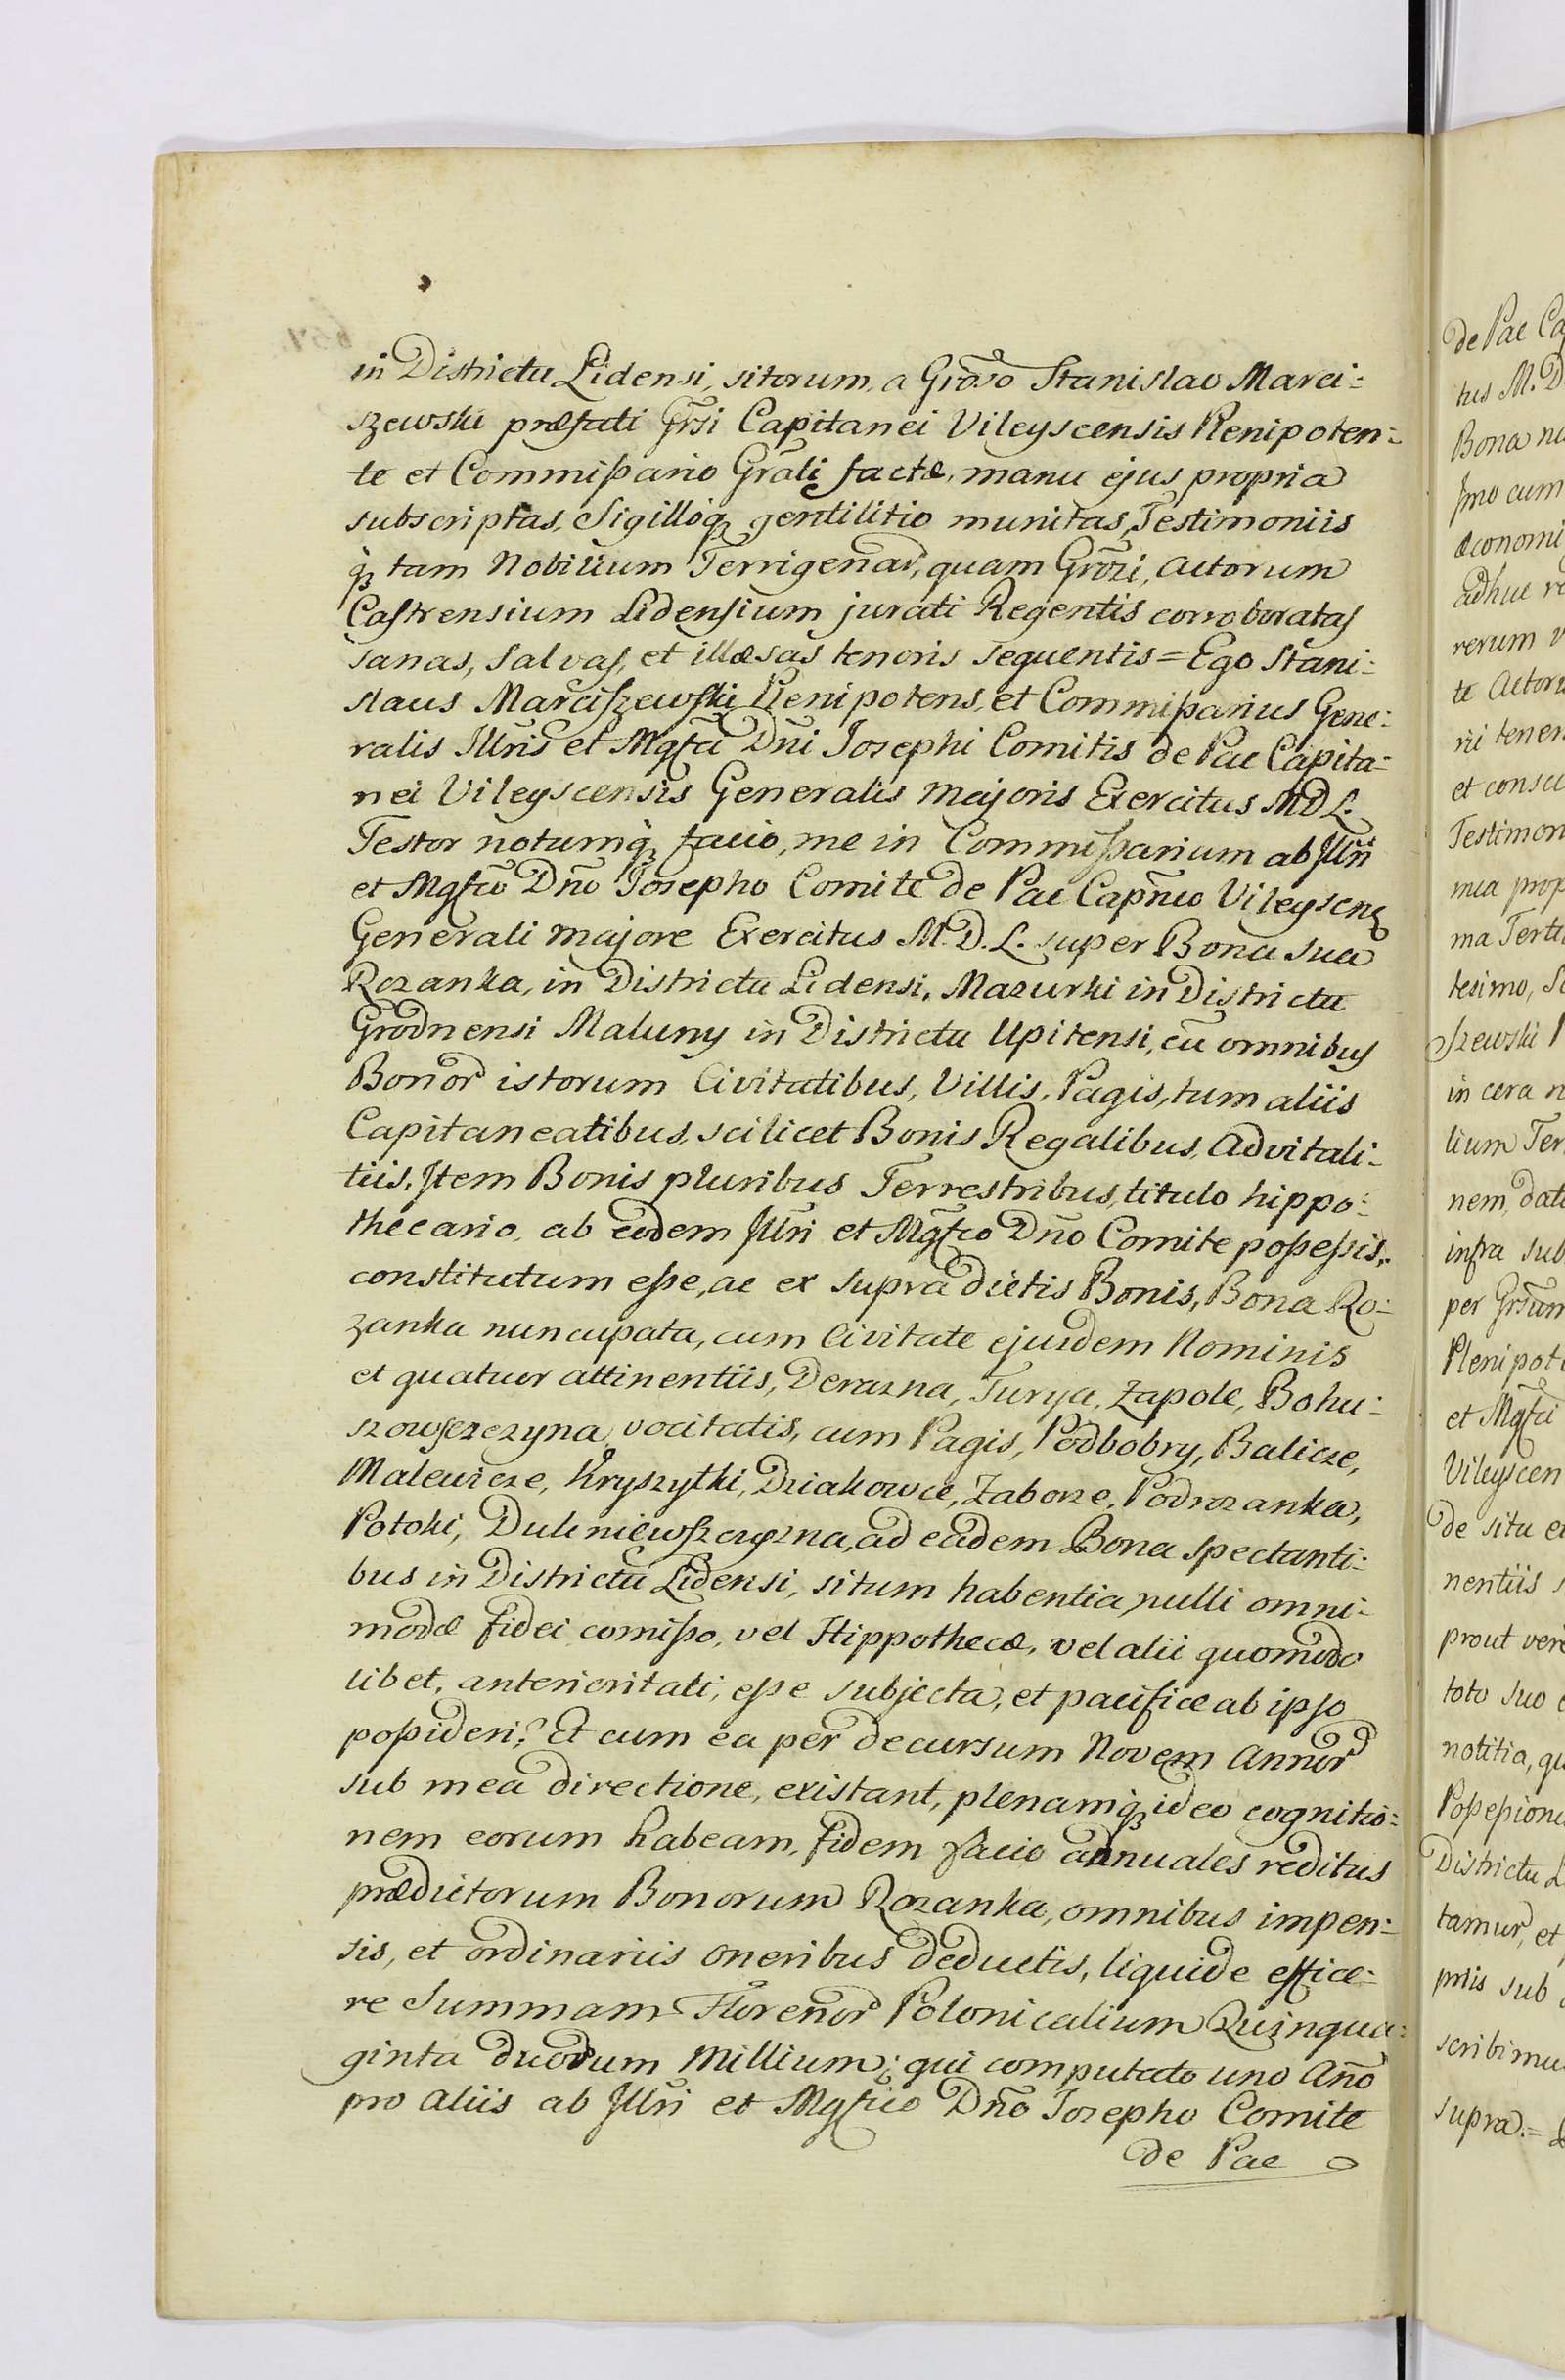 in Districtu Lidensi, sitorum, a Groso Stanislao Marci:
szewski præfati Grsi Capitanei Vileyscensis Plenipoten:
te et Commißario Grali factæ, manu ejus propria
subscriptas, Sigilloq; gentilitio munitas, Testimoniis
q; tam Nobilium Terrigenar, quam Grosi, Actorum
Castrensium Lidensium jurati Regentis corroboratas
sanas, salvas, et illæsas tenoris sequentis = Ego Stani:
slaus Marciszewski Plenipotens, et Commißarius Gene:
ralis Illris et Mgfci Dni Josephi Comitis de Pac Capita:
nei Vileyscensis Generalis Majoris Exercitus M D L.
Testor notumq; facio, me in Commißarium ab Illri
et Mgfco Dno Josepho Comite de Pac Capneo Vileyscenß
Generali Majore Exercitus M. D. L. super Bona sua
Rozanka, in Districtu Lidensi, Mazurki in Districtu
Grodnensi Maluny in Districtu Upitensi, cu omnibus
Bonor istorum Civitatibus, Villis, Pagis, tum aliis
Capitaneatibus, scilicet Bonis Regalibus, Advitali:
tiis, Item Bonis pluribus Terrestribus, titulo hippo:
thecario, ab eodem Illri et Mgfco Dno Comite poßeßis,
constitutum eße, ac ex supra dictis Bonis, Bona Ro:
zanka nuncupata, cum Civitate ejusdem Nominis
et quatuor attinentiis, Derazna, Turya, Zapole, Bohu:
szowszczyzna vocitatis, cum Pagis, Podbobry, Balicze,
Malewicze, Kryszytki, Dziakowce, Zaborze, Podrozanka,
Potoki, Duleniewszczyzna, ad eadem Bona spectanti:
bus in Districtu Lidensi, situm habentia nulli omni:
modæ fidei comißo, vel Hippothecæ, vel alii quomodo
libet, anterioritati, eße subjecta, et pacifice ab ipso
poßideri; Et cum ea per decursum Novem Annor
sub mea directione, existant, plenamq; ideo cognitio:
nem eorum habeam, fidem facio annuales reditus
prædictorum Bonorum Rozanka, omnibus impen:
sis, et ordinariis oneribus deductis, liquide effice:
re Summam Florenor Polonicalium Quinqua:
ginta duorum Millium; qui computato uno Ano
pro aliis ab Illri et Mgfico Dno Josepho Comite
de Pac
de Pac Ca
tus M. D
Bona nu
Imo cum
æconomi
adhuc re
rerum v
te Actoru
ri tenen
et consci
Testimon
mea prop
ma Terti
tesimo, Se
szewski P
in cera
lium Ter
nem, dat
infra sub
per Grsum
Plenipot
et Mgfci
Vileyscen
de situ e
nentiis
prout ver
toto suo
notitia, qu
Poßeßione
Districtu L
tamur, et
priis sub
scribimu
supra =